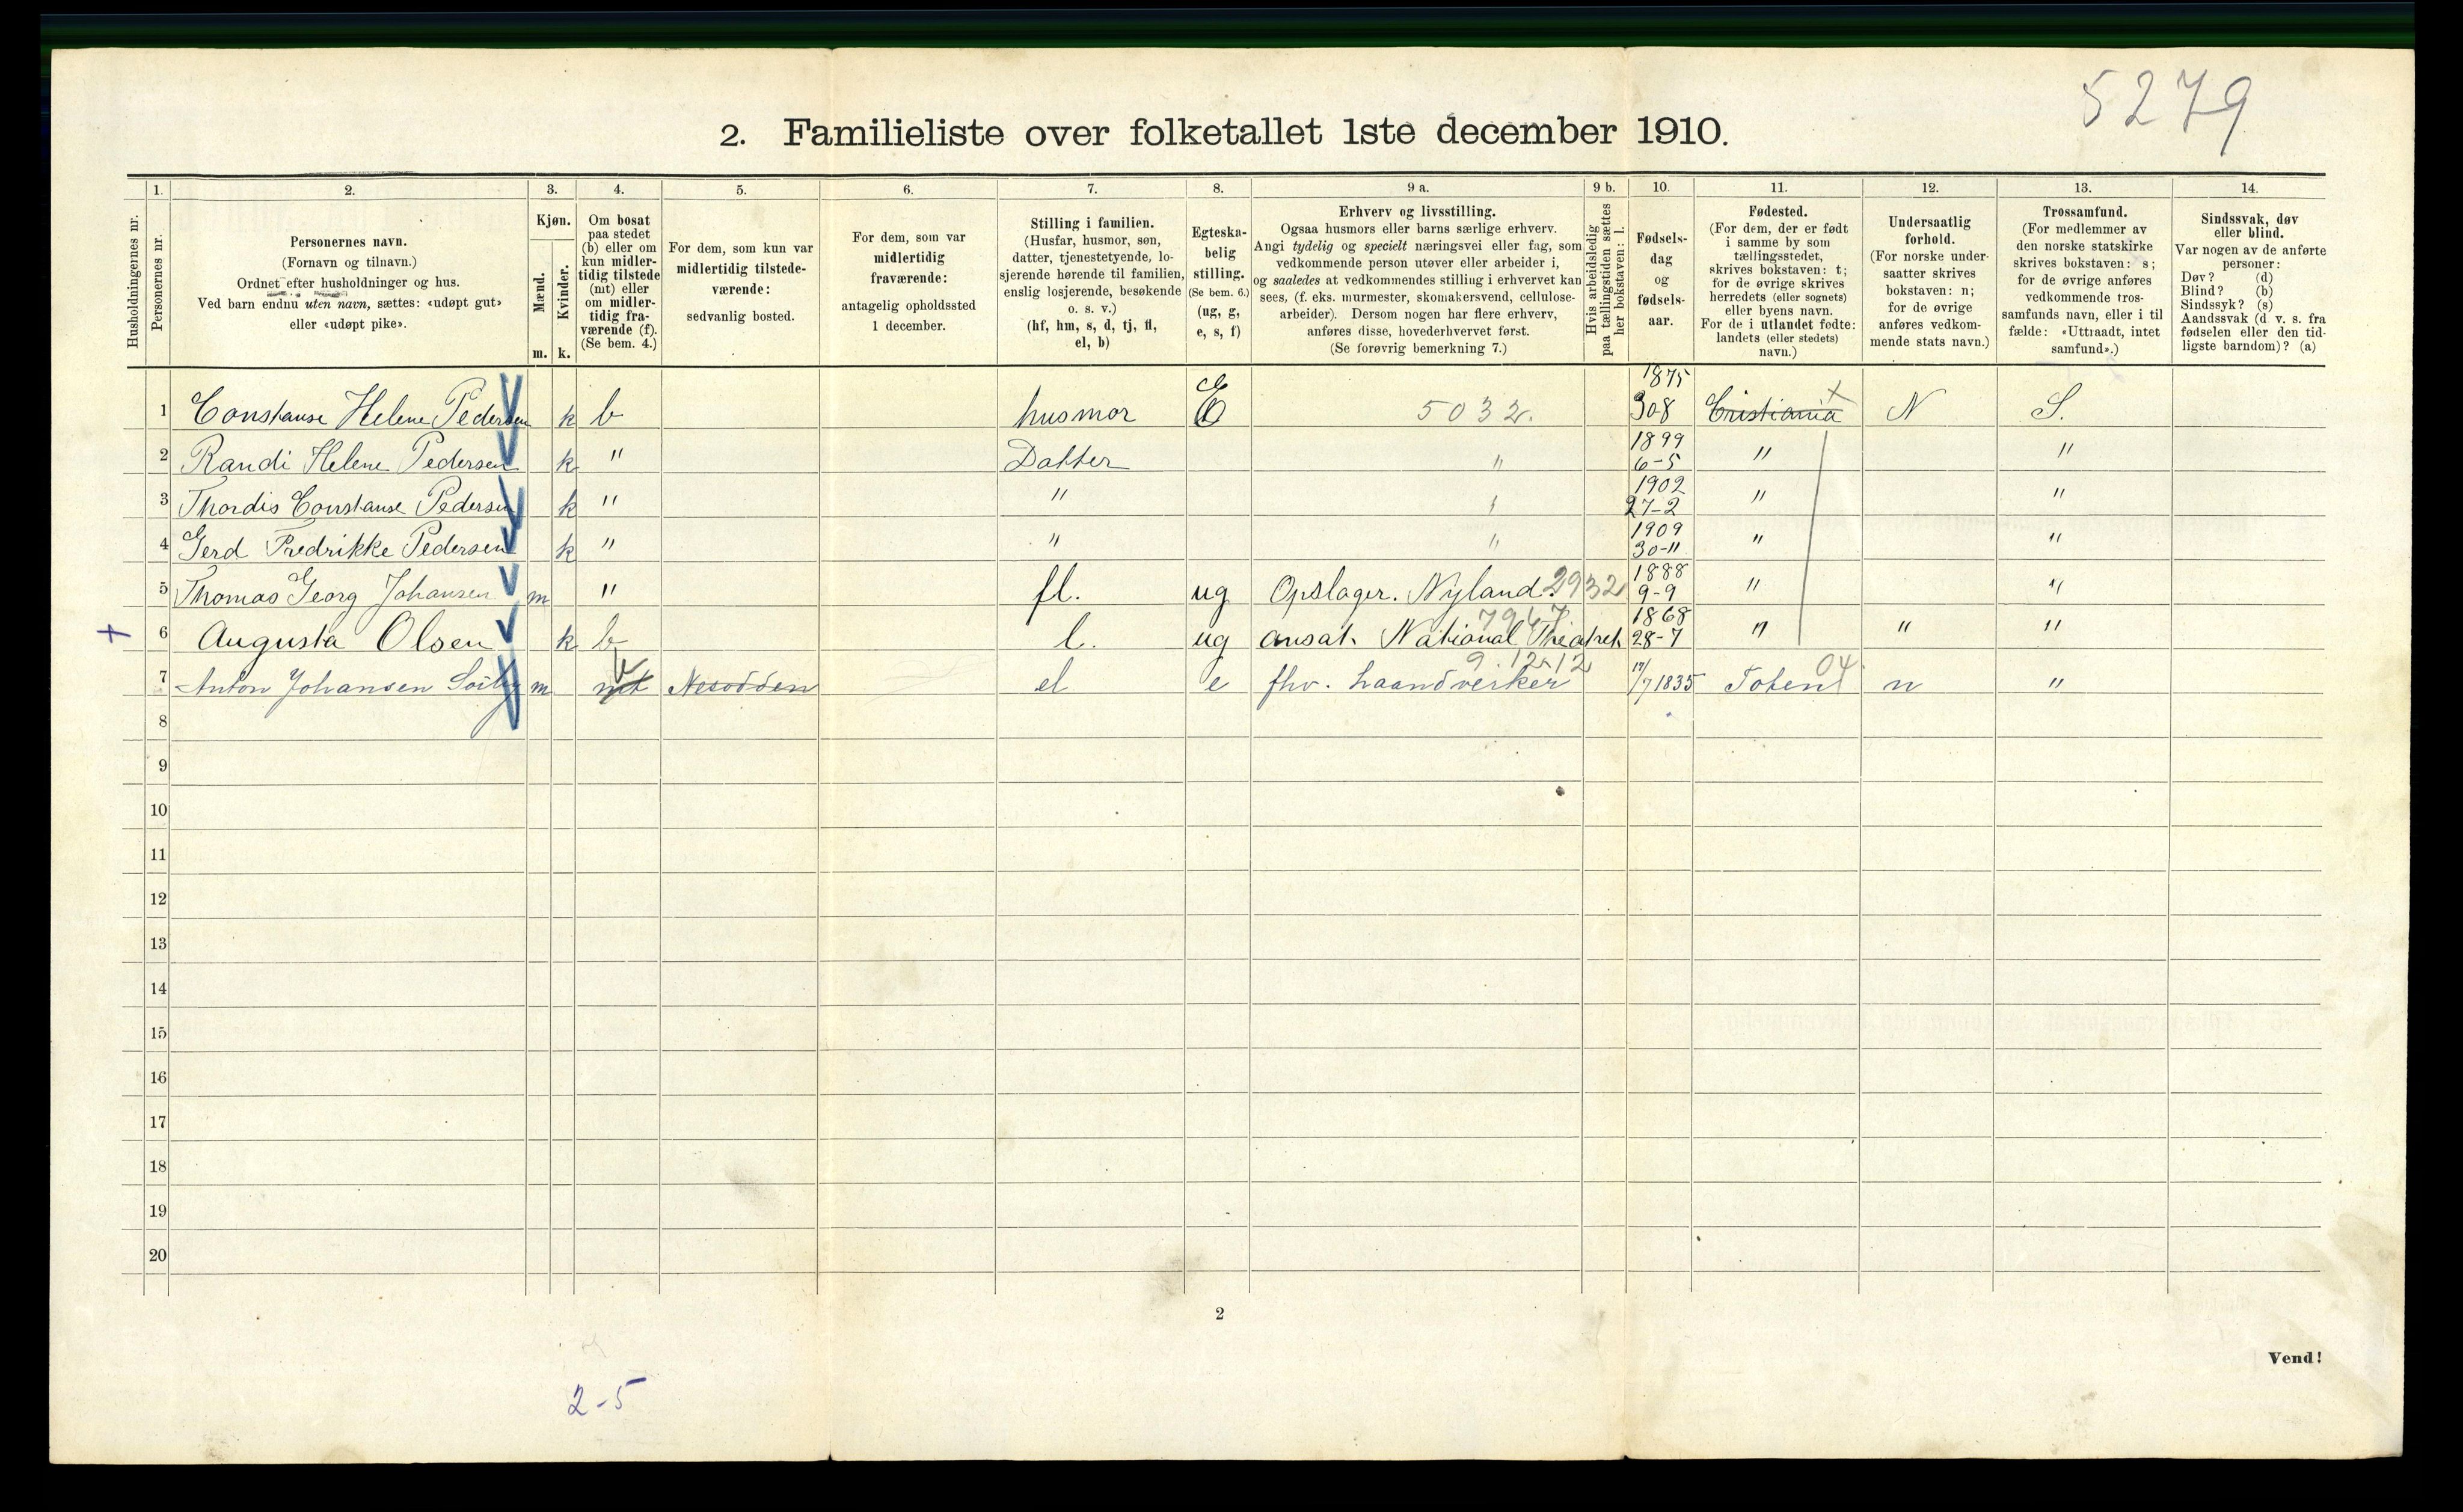 5279
2. Familieliste over folketallet 1ste december 1910.
1. 2. 3. 4. 5. 6. 7. 8. 9 a. 9 b. 10. 11. 12. 13. 14.
Husholdningernes nr.
Personernes nr.
Personernes navn.
(Fornavn og tilnavn.)
Ordnet efter husholdninger og hus.
Ved barn endnu uten navn, sættes: «udøpt gut»
eller «udøpt pike».
Kjøn.
Mænd.
Kvinder.
m. k.
Om bosat
paa stedet
(b) eller om
kun midler-
tidig tilstede
(mt) eller
om midler-
tidig fra-
værende (f).
(Se bem. 4.)
For dem, som kun var
midlertidig tilstede-
værende:
sedvanlig bosted.
For dem, som var
midlertidig
fraværende:
antagelig opholdssted
1 december.
Stilling i familien.
(Husfar, husmor, søn,
datter, tjenestetyende, lo-
sjerende hørende til familien,
enslig losjerende, besøkende
o. s. v.)
(hf, hm, s, d, tj, fl,
el, b)
Egteska-
belig
stilling.
(Se bem. 6.)
(ug, g,
e, s, f)
Erhverv og livsstilling.
Ogsaa husmors eller barns særlige erhverv.
Angi tydelig og specielt næringsvei eller fag, som
vedkommende person utøver eller arbeider i,
og saaledes at vedkommendes stilling i erhvervet kan
sees, (f. eks. murmester, skomakersvend, cellulose-
arbeider). Dersom nogen har flere erhverv,
anføres disse, hovederhvervet først.
(Se forøvrig bemerkning 7.)
Hvis arbeidsledig
paa tællingstiden sættes
her bokstaven: l.
Fødsels-
dag
og
fødsels-
aar.
Fødested.
(For dem, der er født
i samme by som
tællingsstedet,
skrives bokstaven: t;
for de øvrige skrives
herredets (eller sognets)
eller byens navn.
For de i utlandet fødte:
landets (eller stedets)
navn.)
Undersaatlig
forhold.
(For norske under-
saatter skrives
bokstaven: n;
for de øvrige
anføres vedkom-
mende stats navn.)
Trossamfund.
(For medlemmer av
den norske statskirke
skrives bokstaven: s;
for de øvrige anføres
vedkommende tros-
samfunds navn, eller i til
fælde: «Uttraadt, intet
samfund».)
Sindssvak, døv
eller blind.
Var nogen av de anførte
personer:
Døv? (d)
Blind? (b)
Sindssyk? (s)
Aandssvak (d. v. s. fra
fødselen eller den tid-
ligste barndom)? (a)
1 Constanse Helene Pedersen k b husmor 5032. 1875 30-8 Cristiania N S.
2 Randi Helene Pedersen k " Datter " 1899 6-5 " "
3 Thordis Constanse Pedersen k " " " 1902 27-2 " "
4 Gerd Fredrikke Pedersen k " " " 1909 30-11 " "
5 Thomas Georg Johansen m " fl. ug Opslager. Nyland. 2932 1888 9-9 " "
6 Augusta Olsen k b l. ug ansat. National Theatret 7947 1868 28-7 " " "
7 Anton Johansen m mt b Nesodden el e fhv. haandverker 9.12.12 1835 Toten 04 n "
8
9
10
11
12
13
14
15
16
17
18
19
20
2
Vend!
2-5